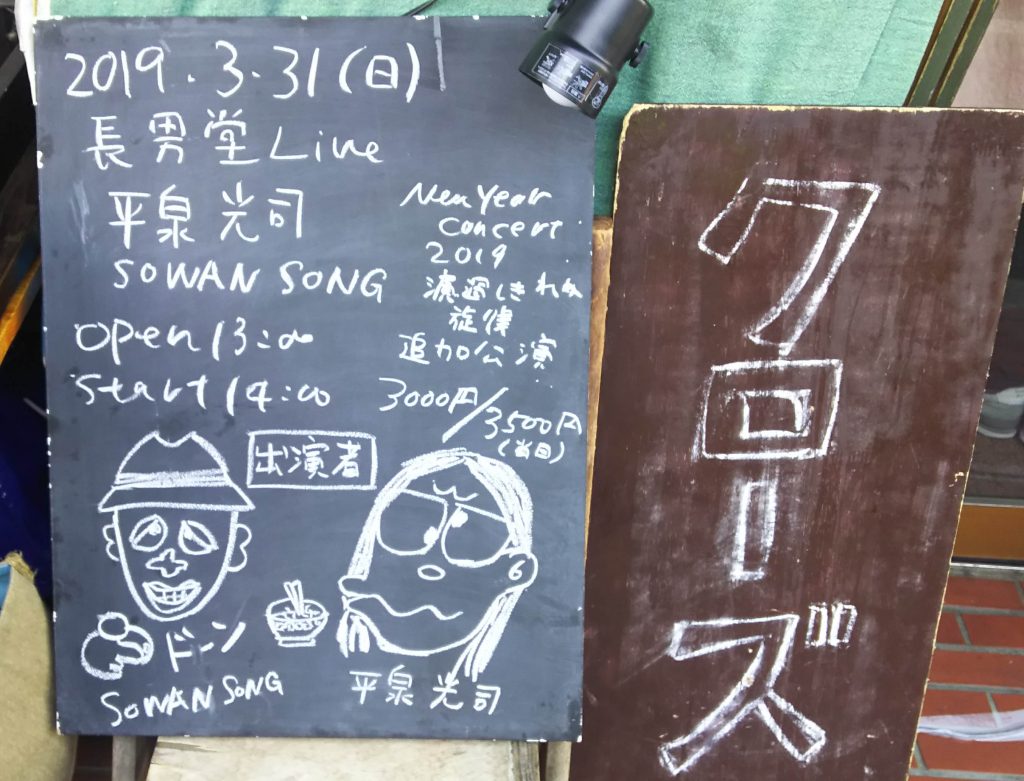 2019.3.31(日)
長男堂Live
平泉光司
SOWAN SONG
open 13:00
Start 14:00
New Year
concert
2019
旋律
追加公演
3000円/3500円
(当日)
出演者
ドーン
SOWAN SONG
平泉 光司
クローズ